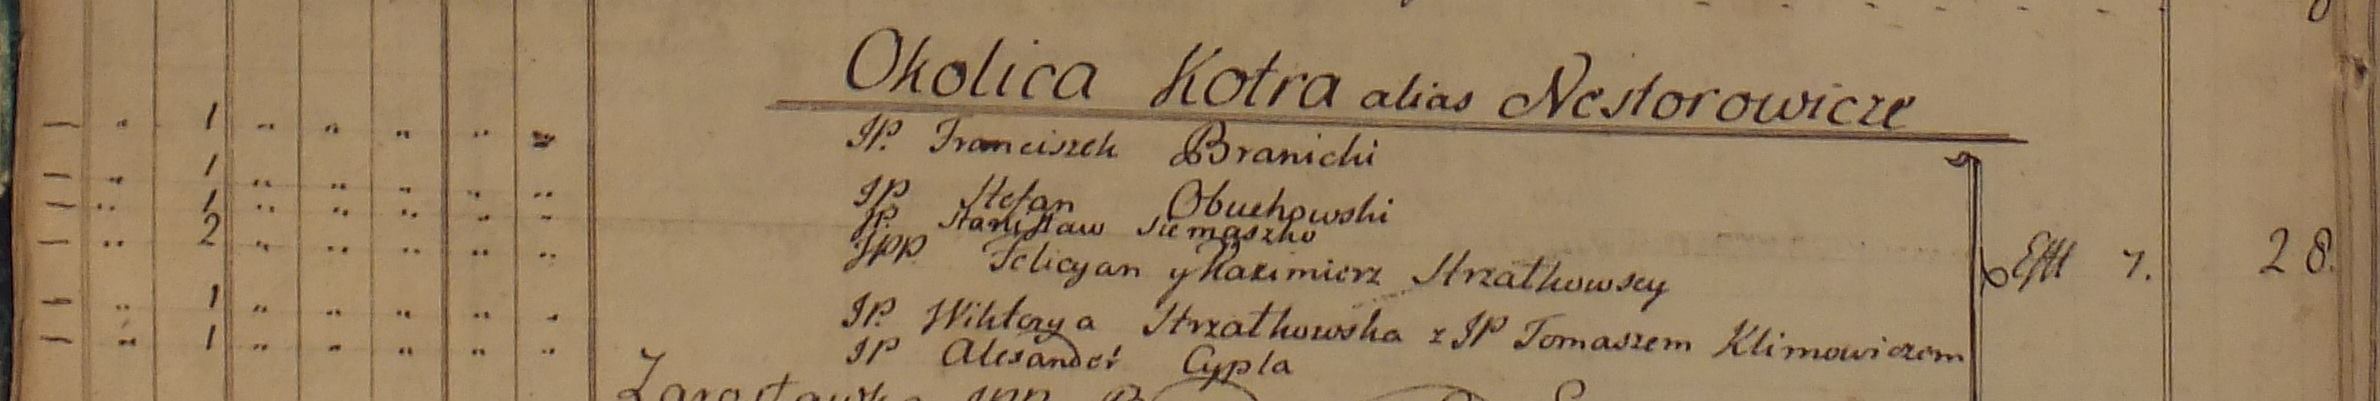 Okolica Kotra alias Nestorowicze
1 JP. Franciszek Branicki
1 JP Stefan Obuchowski
1 JP. Stanisław Siemaszko
2 JPP Felicyan y Kazimierz Strzałkowscy 7. 28.
1 JP. Wiktorya Strzałkowska z JP Tomaszem Klimowiczem
1 JP Alexander Cypla